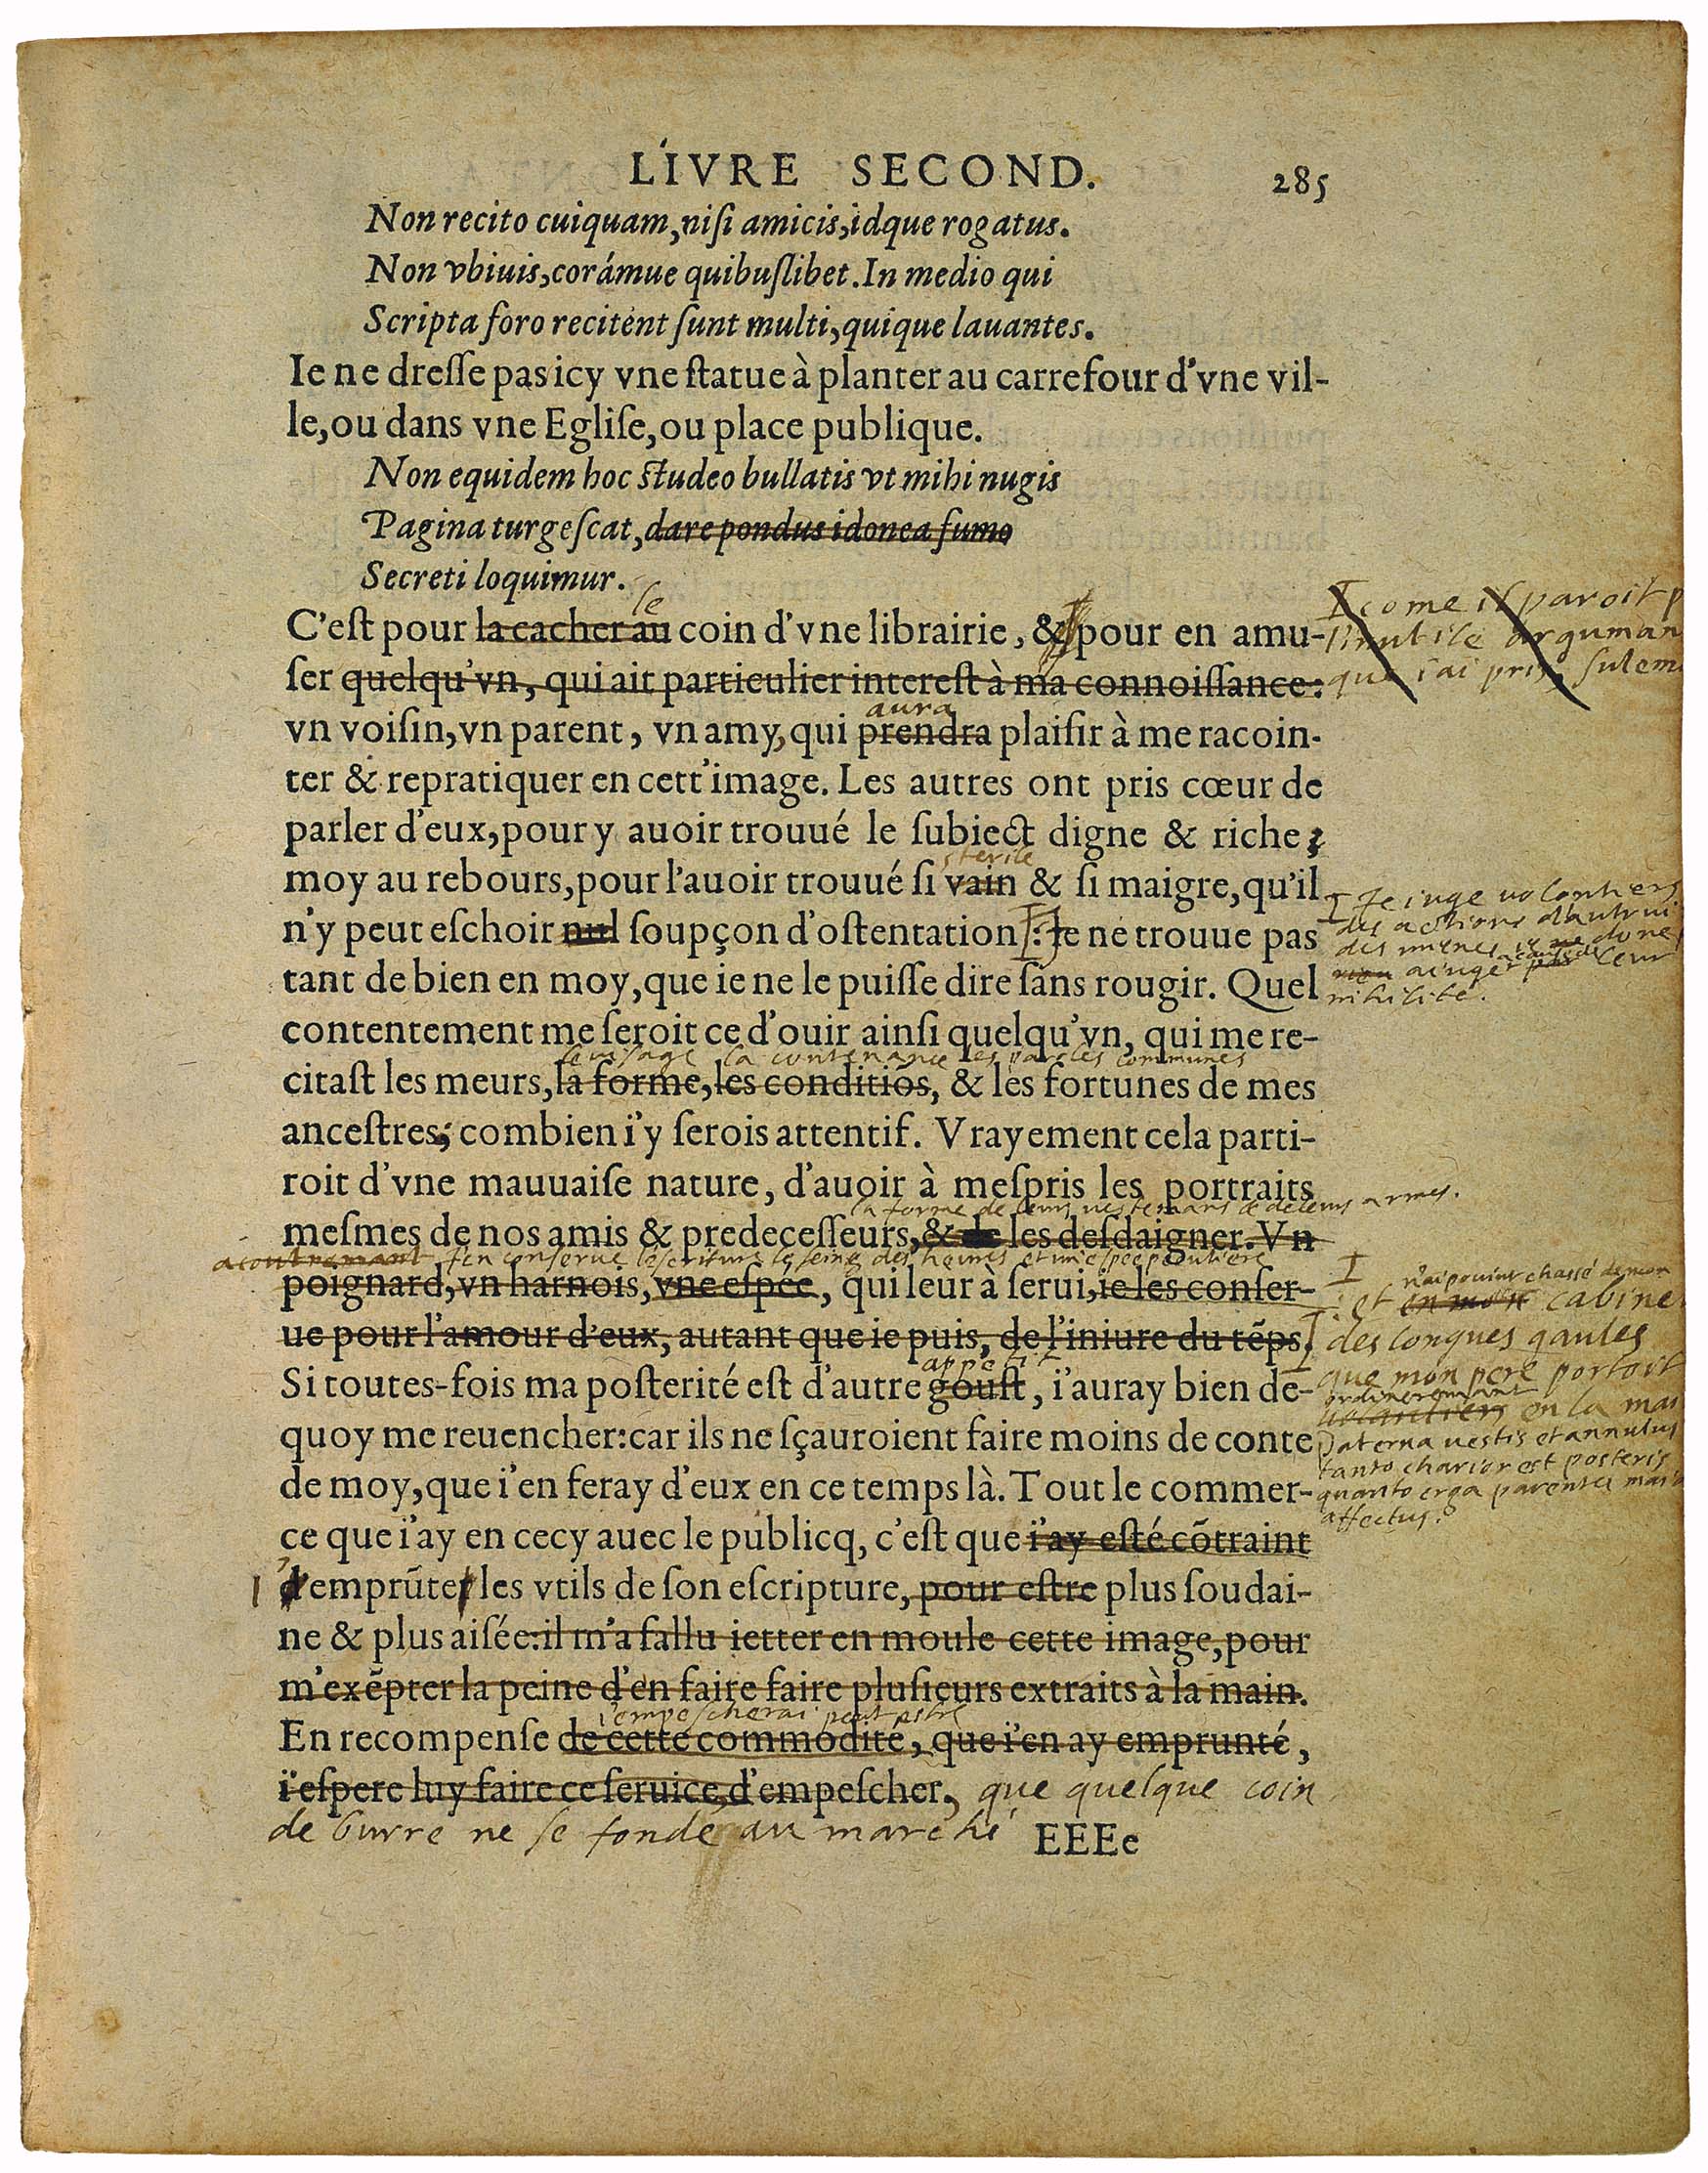 LIVRE SECOND. 285
Non recito cuiquam, niſi amicis, idque rogatus.
Non vbiuis, corámue quibuſlibet. In medio qui
Scripta foro recitent ſunt multi, quique lauantes.
Ie ne dreſſe pas icy vne ſtatue à planter au carrefour d'vne vil-
le, ou dans vne Egliſe, ou place publique.
Non equidem hoc ſtudeo bullatis vt mihi nugis
Pagina turgeſcat, dare pondus idonea fumo
Secreti loquimur.
le
C'eſt pour la cacher au coin d'vne librairie, & pour en amu-
come il paroit
l'inutile arguman
que i'ai pris
ſer quelqu'vn, qui ait particulier intereſt à ma connoiſſance:
aura
vn voiſin, vn parent, vn amy, qui prendra plaiſir à me racoin-
ter & repratiquer en cett'image. Les autres ont pris cœur de
parler d'eux, pour y auoir trouué le ſubiect digne & riche;
sterile
moy au rebours, pour l'auoir trouué ſi vain & ſi maigre, qu'il
n'y peut eſchoir nul ſoupçon d'oſtentation: Ie ne trouue pas
Ie iuge volontiers
des actions d'autrui
des mienes ie done
a iuger a cause de leur
nihilité.
tant de bien en moy, que ie ne le puiſſe dire ſans rougir. Quel
contentement me ſeroit ce d'ouir ainſi quelqu'vn, qui me re-
le uisage la contenance les paroles communes
citaſt les meurs, la forme, les conditiõs, & les fortunes de mes
anceſtres; combien i'y ſerois attentif. Vrayement cela parti-
roit d'vne mauuaiſe nature, d'auoir à meſpris les portraits
la forme de leurs uestemans & de leurs armes.
meſmes de nos amis & predeceſſeurs, & de les deſdaigner. Vn
acoutremant I'en conserue l'escriture le seing des heures et un'espee
poignard, vn harnois, vne eſpée, qui leur à ſerui, ie les conſer-
ue pour l'amour d'eux, autant que ie puis, de l'iniure du tẽps.
: et n'ai pouint chassé de mon
en mon cabine
des longues gaules
que mon pere portoit
ordineremant
en la mai
Paterna uestis et annulus
tanto charior est posteris
quanto erga parentes maior
affectus.
appetit
Si toutes-fois ma poſterité eſt d'autre gouſt, i'auray bien de-
quoy me reuencher: car ils ne ſçauroient faire moins de conte
de moy, que i'en feray d'eux en ce temps là. Tout le commer-
ce que i'ay en cecy auec le publicq, c'eſt que i'ay eſté cõtraint
d'emprũter les vtils de ſon eſcripture, pour eſtre plus ſoudai-
ne & plus aiſée: il m'a fallu ietter en moule cette image, pour
m'exẽpter la peine d'en faire faire pluſieurs extraits à la main.
i'empescherai peut estre
En recompenſe de cette commodité, que i'en ay emprunté,
i'eſpere luy faire ce ſeruice d'empeſcher, que quelque coin
de burre ne se fonde au marché EEEe